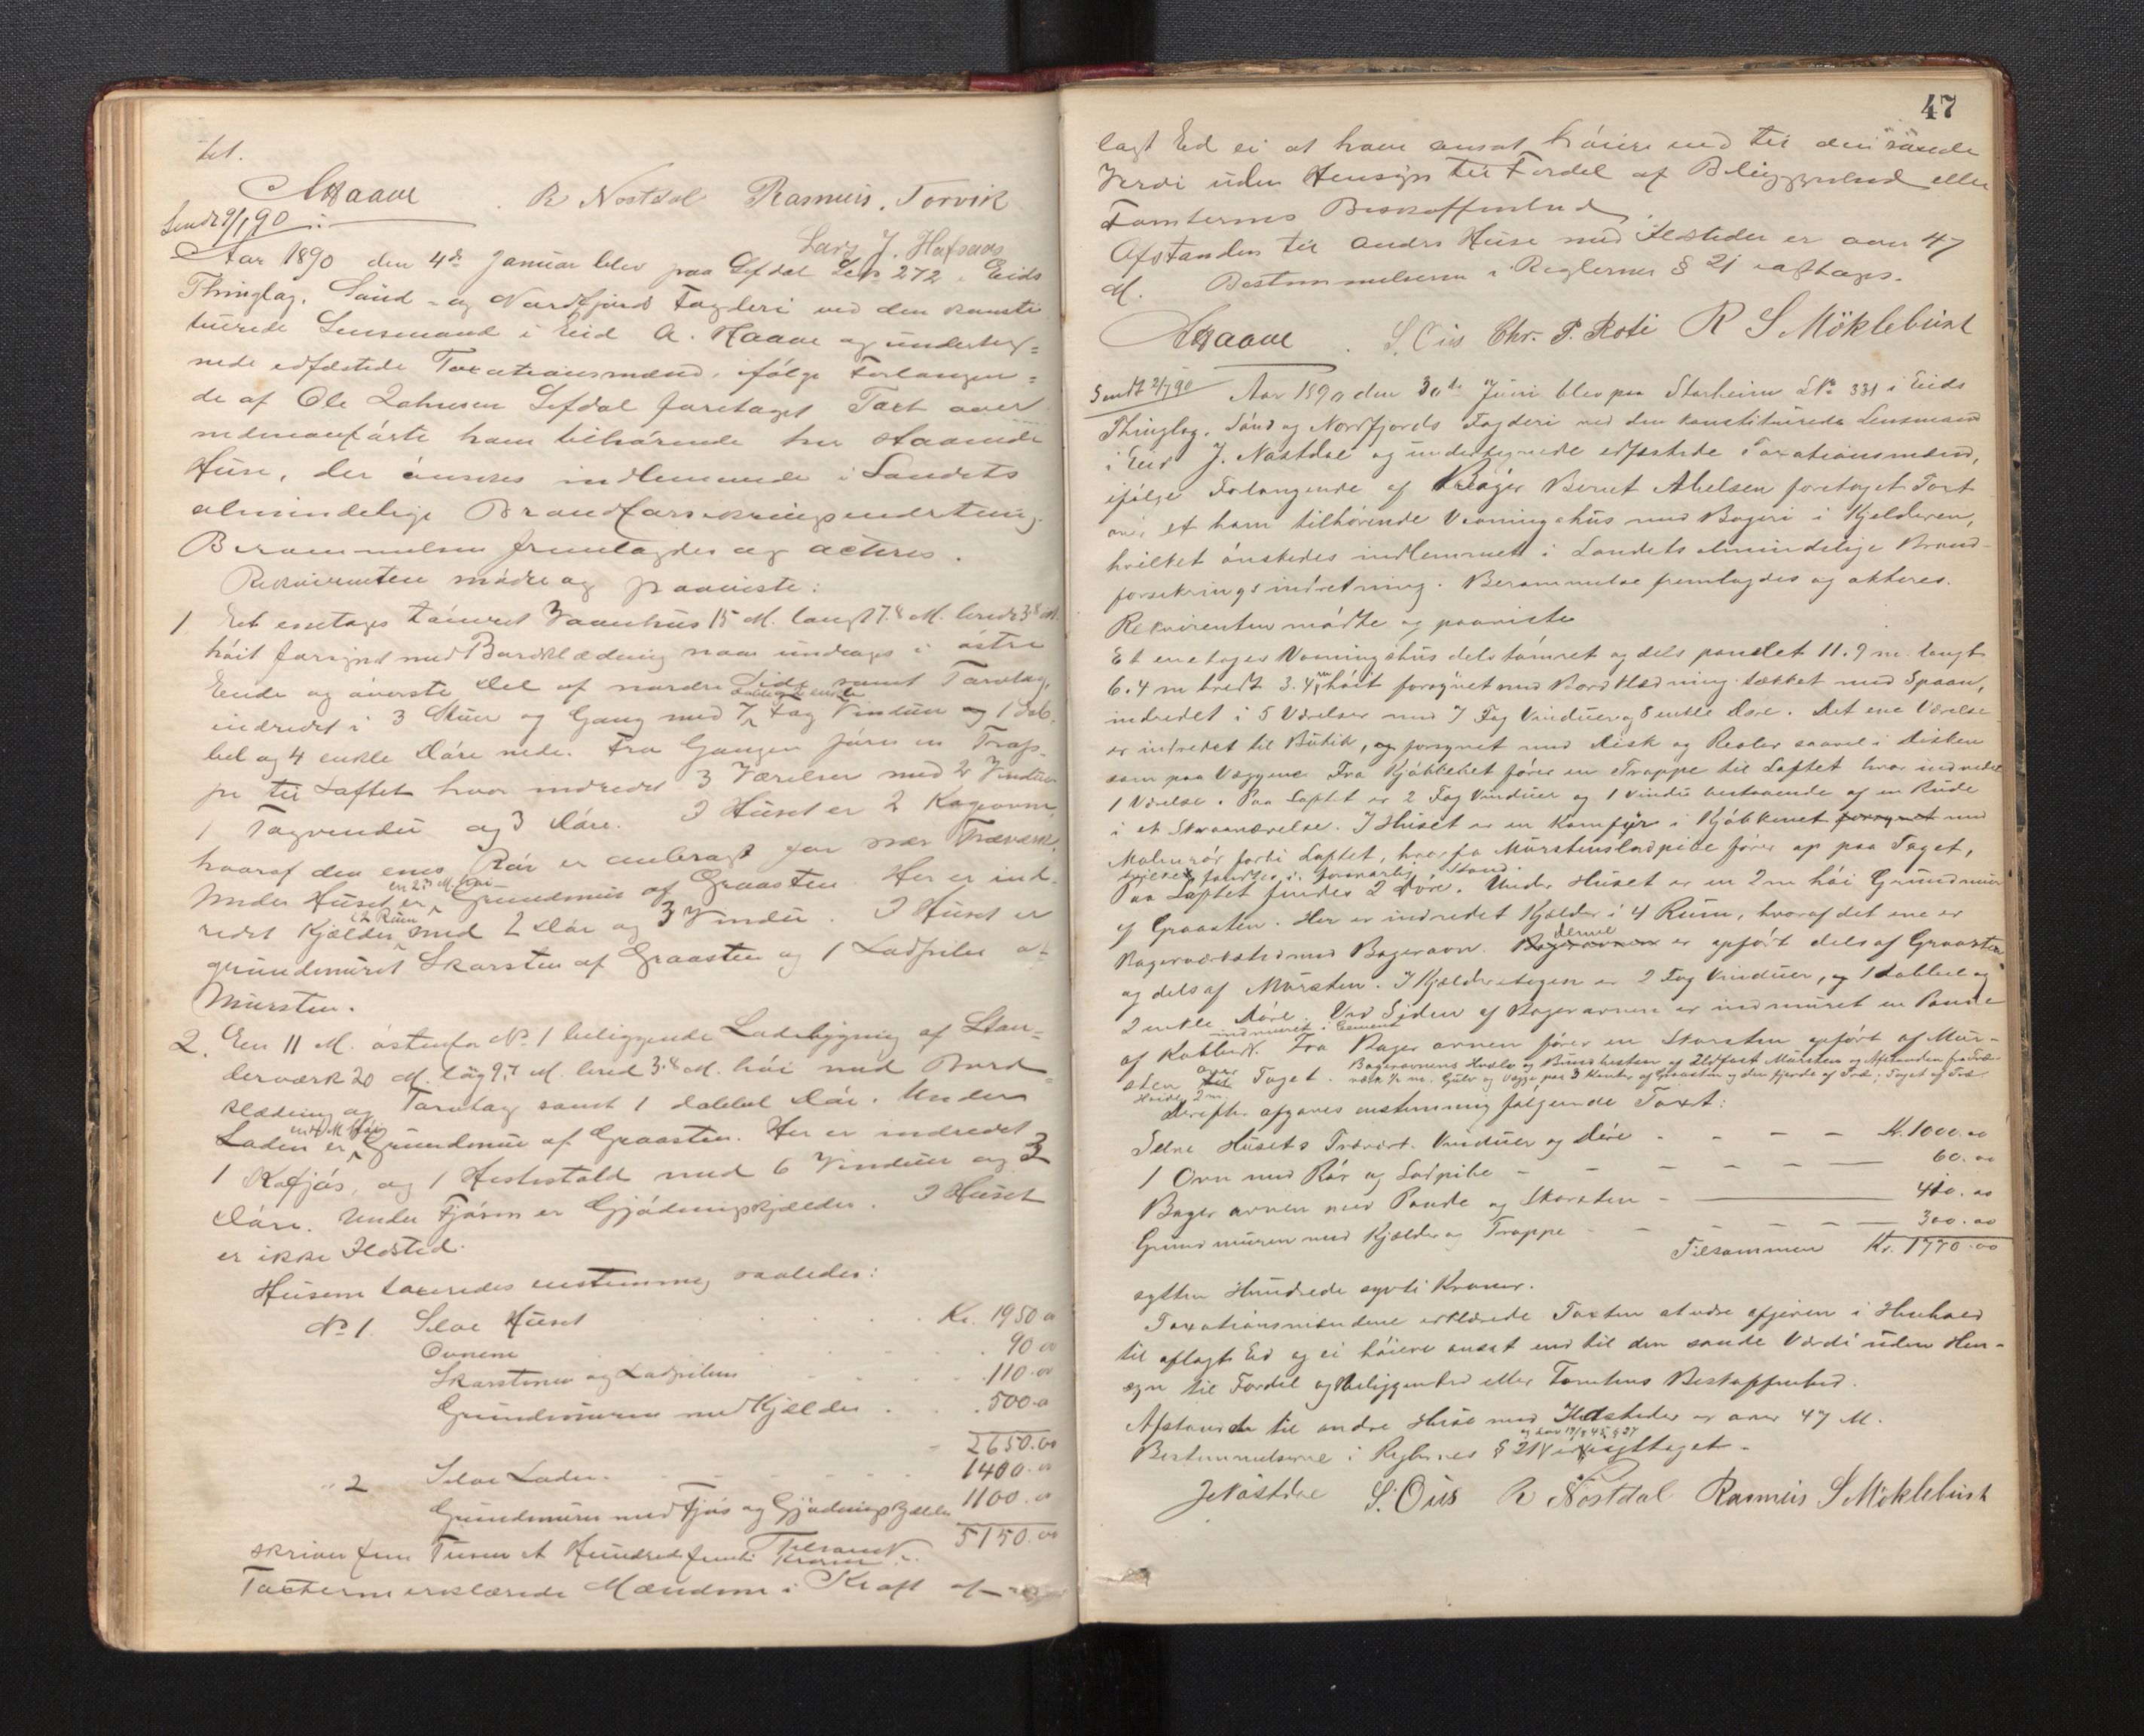 tet.
AHaave R Nostdal Rasmus. Torvik
Lars J. Hafsaas
Sendt 9/1 90
Aar 1890 den 4de Januar blev paa Lefdal L№ 272 i Eids
Thinglag, Sönd- og Nordfjords Fogderi ved den konsti
tuerede Lensmand i Eid A. Haave og underteg=
nede edfæstede Taxationsmænd, ifölge Forlangen=
de af Ole Lefdal foretaget Taxt over
nedenanförte ham tilhörende to staaende
Huse, der önskes indlemmede i Landets
almindelige Brandforsikringsindretning.
Berammelsen fremlagdes og acteres.
Rekvirenten mödte og paaviste:
1. Et enetages tömret Vaanhus 15 M. langt 7.8 M. bredt 3.8 M.
höit forsynet med Bordklædning naar undtages i östre
Ende og överste Del af nordre Side samt Torvtag,
indredet i 3 Stuer og Gang med 7 Fag Vinduer og 1 dob,
bel og 4 enkle Döre nede. Fra Gangen förer en Trap-
pe til Loftet hvor indredet 3 Værelser med 2 Vinduer
1 Tagvindu og 3 Döre. I Huset er 2 Kogeovne,
hvoraf den enes Rör er anbragt for nær Træværk.
en 2.5 M. höi
Under Huset er Grundmur af Graasten. Her er ind-
i 2 Rum
redet Kjælder med 2 Dör og 3 Vindu. I Huset er
grundmuret Skorsten af Graasten og 1 Ladpibe af
Mursten.
2. En 11 M. östenfor № 1 beliggende Ladebygning af Stan-
derværk 20 M. lang 9.7 M. bred 3.8 M. höi med Bord-
klædning og Torvtag samt 1 dobbel Dör. Under
Laden er Grundmur af Graasten. Her er indredet
1 Kofjös, og 1 Hestestald med 6 Vinduer og 3
Döre. Under Fjösen er Gjödningskjælder. I Huset
er ikke Ildsted.
Husene taxeredes enstemmig saaledes:
№ 1. Selve Huset Kr. 1950 00
Ovnene 90 00
Skorstenen og Ladpiben 110.00
Grundmuren med Kjælder 500.00
2650.00
" 2 Selve Laden 1400.00
Grundmuren med Fjös og Gjödningskjælder 1100.00
Tilsammen 5150.00
skriver fem Tusen et Hundrede femti Kroner.
Taxterne erklærede Mændene i Kraft af
47
lagt Ed ei at have ansat höiere end til den sande
Værdi uden Hensyn til Fordel af Beliggenhed eller
Tomternes Beskaffenhed.
Afstanden til andre Huse med Ildsteder er over 47
M. Bestemmelserne i Reglernes § 21 iagttages.
AHaave. S. Ous Chr. P. Roti R S Möklebust
Sendt 2/7 90 Aar 1890 den 30te Juni blev paa Starheim L№ 331 i Eids
Thinglag, Sönd og Nordfjords Fogderi ved den konstituerede Lensmand
i Eid J. Nöstdal og undertegnede edfæstede Taxationsmænd,
ifölge Forlangende af Bager Bernt Abelsen foretaget Taxt
over et ham tilhörende Vaaningshus med Bageri i Kjelderen,
hvilket önskedes indlemmet i Landets almindelige Brand-
forsikringsindretning. Berammelse fremlagdes og akteres.
Rekvirenten mödte og paaviste
Et enetages Vaaningshus dels tömret og dels panelet 11.9 m. langt
6.4 m bredt 3.4 m höit forsynet med Bordklædning tækket med Spaan,
indredet i 5 Værelser med 7 Fag Vinduer og 8 enkle Döre. Det ene Værelse
er indredet til Butik, og forsynet med Disk og Reoler saavel i Disken
som paa Væggene. Fra Kjökkenet förer en Trappe til Loftet hvor indredet
1 Værelse. Paa Loftet er 2 Fag Vinduer og 1 Vindu bestaaende af en Rude
i et Skraaværelse. I Huset er en Komfyr i Kjökkenet forsynet med
Malmrör forbi Loftet, hvorfra Murstensladpibe förer op paa Taget,
i forsvarlig Stand.
Paa Loftet findes 2 Döre. Under Huset er en 2 m höi Grundmur
af Graasten. Her er indredet Kjælder i 4 Rum, hvoraf det ene er
Bagerværksted med Bagerovn. Bagerovnen denne er opfört dels af Graasten
og dels af Mursten. I Kjælderetagen er 2 Fag Vinduer, og 1 dobbel og
2 enkle Döre. Ved Siden af Bagerovnen er indmuret en Pande
indmuret i Cement
af Kobber. Fra Bagerovnen förer en Skorsten opfört af Mur-
sten over Taget. Bagerovnens Hvælv og Bund bestaar af Ildfast Mursten og Afstanden fra Træ-
værk 1/2 m. Gulv og Vægge paa 3 Kanter af Graasten og den fjerde af Træ; Taget af Træ.
Höide 2 m.
Derefter afgaves enstemmig fölgende Taxt:
Selve Husets Træværk. Vinduer og Döre Kr. 1000.00
1 Ovn med Rör og Ladpibe 60.00
Bagerovnen med Pande og Skorsten 410.00
Grundmuren med Kjælder og Trappe 300.00
Tilsammen Kr. 1770.00
sytten Hundrede sytti Kroner.
Taxationsmændene erklærede Taxten at være afgiven i Henhold
til aflagt Ed og ei höiere ansat end til den sande Værdi uden Hen-
syn til Fordel af Beliggenhed eller Tomtens Beskaffenhed.
Afstanden til andre Huse med Ildsteder er over 47 M.
Bestemmelserne i Reglernes § 21 er iagttaget.
JNöstdal S. Ous R Nöstdal Rasmus S Möklebust